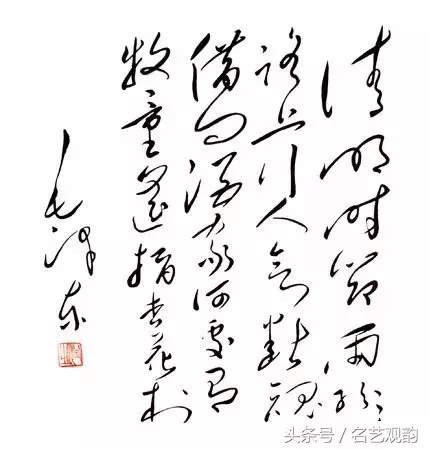 清明时节雨纷纷
路上行人欲断魂
借问酒家何处有
牧童遥指杏花村
毛泽东
头条号 / 名艺观韵